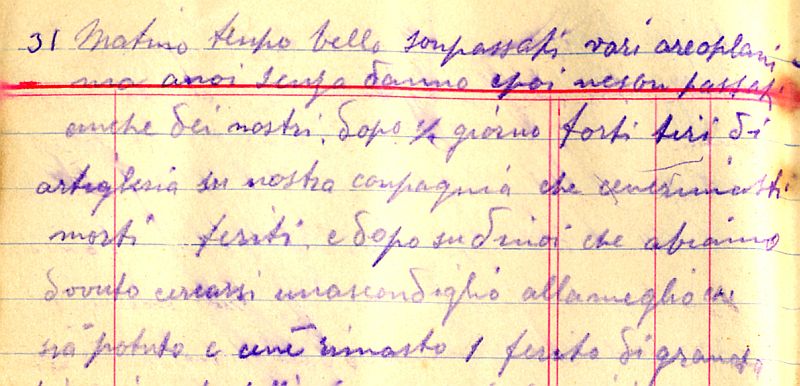 31 Matino tempo bello sonpassati vari areoplani
ma anoi senza danno epoi neson passati
anche dei nostri. dopo ½ giorno forti tiri di
artiglieria su nostra conpagnia che cenerimasti
morti feriti e dopo sudinoi che abiamo
dovuto cercarsi unascondiglio allameglio che
sia potuto e cene rimasto 1 ferito di granata